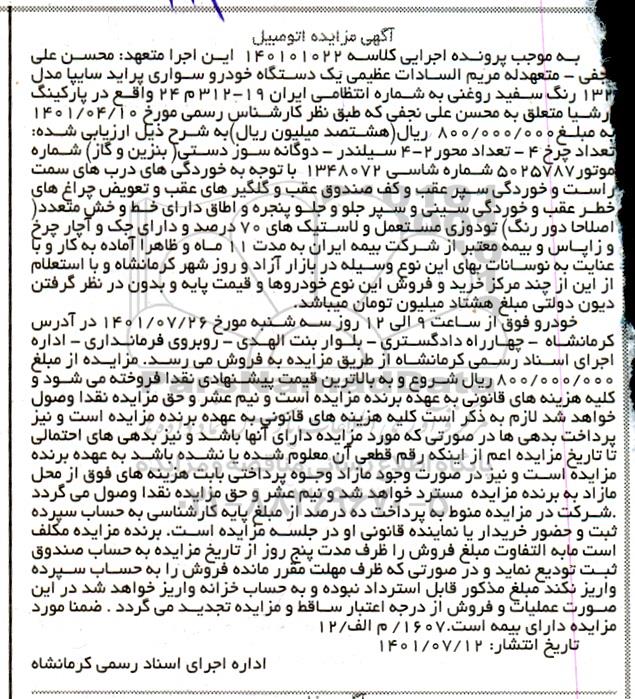 آگهی مزایده اتومبیل
به موجب پرونده اجرایی کلاسه ۱۴۰۱۰۱۰۲۲ این اجرا متعهد: محسن علی
نجفی - متعهدله مریم السادات عظیمی یک دستگاه خودرو سواری پراید سایپا مدل
۱۳۲ رنگ سفید روغنی به شماره انتظامی ایران ۱۹-۳۱۲م۲۴ واقع در پارکینگ
ارشیا متعلق به محسن علی نجفی که طبق نظر کارشناس رسمی مورخ ۱۴۰۱/۰۴/۱۰
به مبلغ ۸۰۰/۰۰۰/۰۰۰ ریال(هشتصد میلیون ریال)به شرح ذیل ارزیابی شده:
تعداد چرخ ۴ - تعداد محور۲-۴ سیلندر - دوگانه سوز دستی( بنزین و گاز) شماره
موتور۵۰۲۵۷۸۷ شماره شاسی ۱۳۴۸۰۷۲ با توجه به خوردگی های درب های سمت
راست و خوردگی سپر عقب و کف صندوق عقب و گلگیر های عقب و تعویض چراغ های
خطر عقب و خوردگی سینی و سپر جلو و جلو پنجره و اطاق دارای خط و خش متعدد(
اصلاحا دور رنگ) تودوزی مستعمل و لاستیک های ۷۰ درصد و دارای جک و آچار چرخ
و زاپاس و بیمه معتبر از شرکت بیمه ایران به مدت ۱۱ ماه و ظاهرا آماده به کار و با
عنایت به نوسانات بهای این نوع وسیله در بازار آزاد و روز شهر کرمانشاه و با استعلام
از این از چند مرکز خرید و فروش این نوع خودروها و قیمت پایه و بدون در نظر گرفتن
دیون دولتی مبلغ هشتاد میلیون تومان میباشد.
خودرو فوق از ساعت ۹ الی ۱۲ روز سه شنبه مورخ ۱۴۰۱/۰۷/۲۶ در آدرس
کرمانشاه - چهارراه دادگستری - بلوار بنت الهدی - روبروی فرمانداری - اداره
اجرای اسناد رسمی کرمانشاه از طریق مزایده به فروش می رسد. مزایده از مبلغ
۸۰۰/۰۰۰/۰۰۰ ریال شروع و به بالاترین قیمت پیشنهادی نقدا فروخته می شود و
کلیه هزینه های قانونی به عهده برنده مزایده است و نیم عشر و حق مزایده نقدا وصول
خواهد شد لازم به ذکر است کلیه هزینه های قانونی به عهده برنده مزایده است و نیز
پرداخت بدهی ها در صورتی که مورد مزایده دارای آنها باشد و نیز بدهی های احتمالی
تا تاریخ مزایده اعم از اینکه رقم قطعی آن معلوم شده یا نشده باشد به عهده برنده
مزایده است و نیز در صورت وجود مازاد وجوه پرداختی بابت هزینه های فوق از محل
مازاد به برنده مزایده مسترد خواهد شد و نیم عشر و حق مزایده نقدا وصول می گردد
.شرکت در مزایده منوط به پرداخت ده درصد از مبلغ پایه کارشناسی به حساب سپرده
ثبت و حضور خریدار یا نماینده قانونی او در جلسه مزایده است. برنده مزایده مکلف
است مابه التفاوت مبلغ فروش را ظرف مدت پنج روز از تاریخ مزایده به حساب صندوق
ثبت تودیع نماید و در صورتی که ظرف مهلت مقرر مانده فروش را به حساب سپرده
واریز نکند مبلغ مذکور قابل استرداد نبوده و به حساب خزانه واریز خواهد شد در این
صورت عملیات و فروش از درجه اعتبار ساقط و مزایده تجدید می گردد . ضمنا مورد
مزایده دارای بیمه است.۱۶۰۷/ م الف/۱۲
تاریخ انتشار: ۱۴۰۱/۰۷/۱۲
اداره اجرای اسناد رسمی کرمانشاه